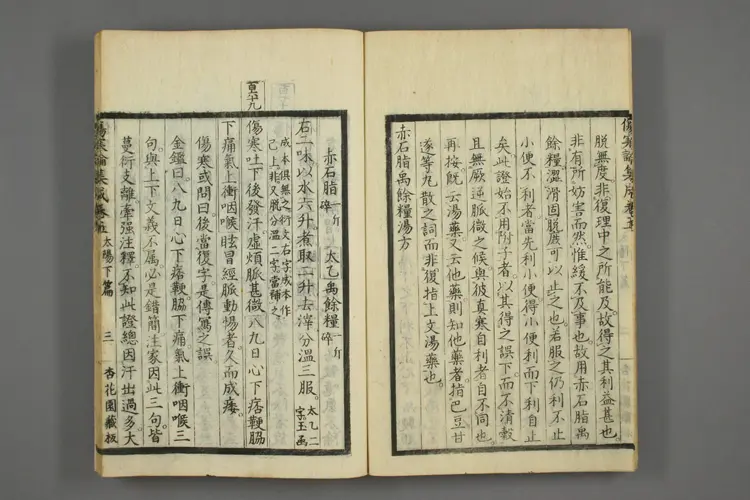 脱無度非復理中之所能及故得之其利益甚也。
非有所妨害而然惟緩不及事也故用赤石脂禹
餘糧澀滑固脱庶可以止之也若服之仍利不止
小便不利者當先利小便得小便利而下利自止
矣此證始不用附子者以其得之誤下而不清穀
且無厥逆脈微之候與彼真寒自利者自不同也。
再按既云湯藥又云他藥則知他藥者指巴豆甘
遂等丸散之詞而非復指上文湯藥也。
赤石脂禹餘糧湯方
赤石脂 一斤碎 太乙禹餘糧 一斤碎
右二味以水六升煮取二升去滓分溫三服。太乙二字玉函
成本俱無之衍文右字成本作
己上非又脱分溫二字當補之
傷寒吐下後發汗虛煩脈甚微八九日心下痞鞕脇
下痛氣上衝咽喉眩冒經脈動惕者久而成痿。
傷寒或問曰後當復字是傳寫之誤
金鑑曰八九日心下痞鞕脇下痛氣上衝咽喉三
句與上下文義不屬必是錯簡注家因此三句皆
蔓衍支離牽强注釋不知此證總因汗出過多大
太陽下篇 三 杏花園藏板